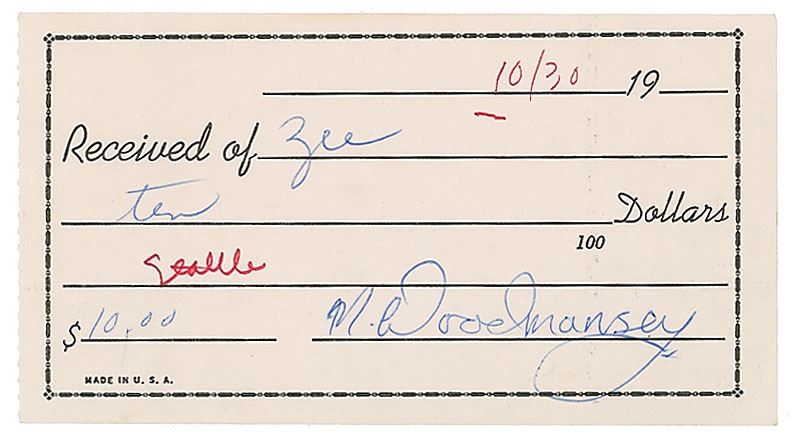 10/30 19
Received of Zee
ten Dollars
100
Seattle
$ 10.00 M. Woodmansey
MADE IN U. S. A.